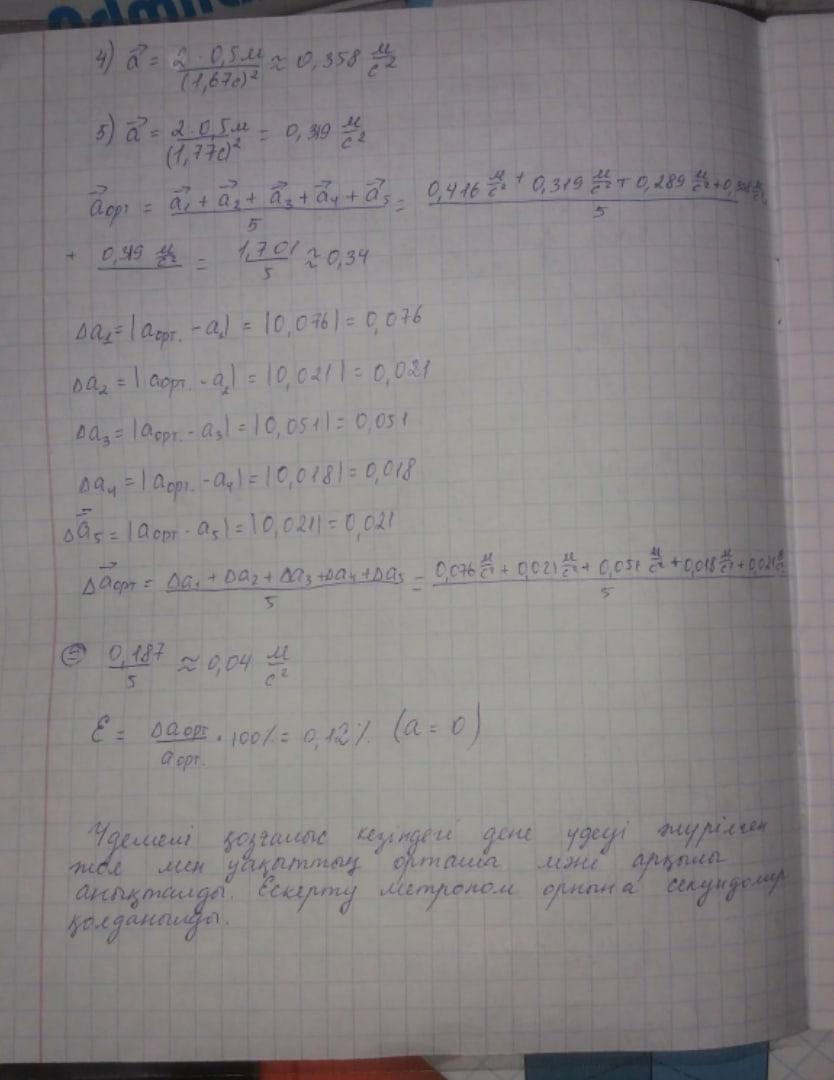 4) a⃗ = 2·0,5м / (1,67с)² ≈ 0,358 м/с²
5) a⃗ = 2·0,5м / (1,77с)² = 0,319 м/с²
a⃗орт = (a⃗₁ + a⃗₂ + a⃗₃ + a⃗₄ + a⃗₅) / 5 = (0,416 м/с² + 0,319 м/с² + 0,289 м/с² + 0,358 м/с²) / 5
+ 0,319 м/с² = 1,701 / 5 ≈ 0,34
Δa₁ = |aорт. - a₁| = |0,076| = 0,076
Δa₂ = |aорт. - a₂| = |0,021| = 0,021
Δa₃ = |aорт. - a₃| = |0,051| = 0,051
Δa₄ = |aорт. - a₄| = |0,018| = 0,018
Δa₅ = |aорт - a₅| = |0,021| = 0,021
Δa⃗орт = (Δa₁ + Δa₂ + Δa₃ + Δa₄ + Δa₅) / 5 = (0,076 м/с² + 0,021 м/с² + 0,051 м/с² + 0,018 м/с² + 0,021 м/с²) / 5
= 0,187 / 5 ≈ 0,04 м/с²
Ɛ = Δaорт / aорт. · 100% = 0,12% (a = 0)
Үдемелі қозғалыс кезіндегі дене үдеуі жүрілген
жол мен уақыттың орташа мәні арқылы
анықталды. Ескерту метроном орнына секундомер
қолданылды.